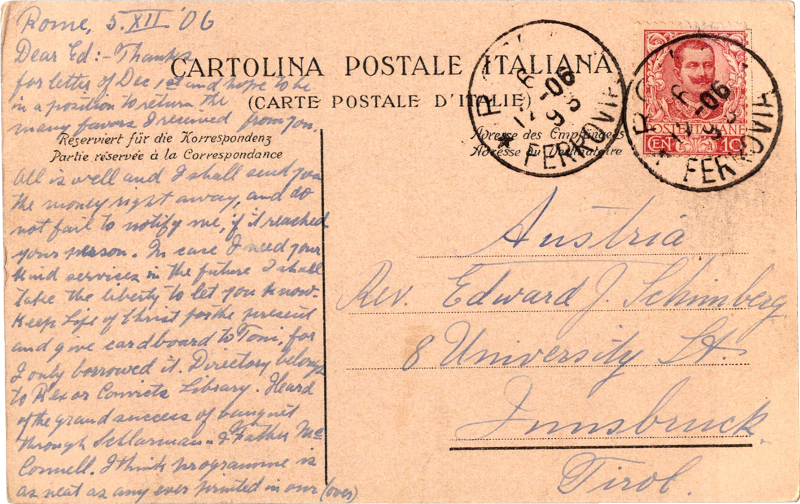 Rome, 5.XII '06
Dear Ed:- Thanks
for letter of Dec 1st and hope to be
in a position to return the
many favors I received from you.
CARTOLINA POSTALE ITALIANA
(CARTE POSTALE D'ITALIE)
Reserviert für die Korrespondenz
Partie réservée à la Correspondance
Adresse des Empfängers
Adresse du Destinataire
All is well and I shall send you
the money right away, and do
not fail to notify me, if it reached
your person. In case I need your
kind services in the future I shall
take the liberty to let you know.
Keep Life of Christ for the present
and give cardboard to Toni, for
I only borrowed it. Directory belongs
to Rex or Convicts Library. Heard
of the grand success of banquet
through Schlarman & Father Mc
Connell. I think programme is
as neat as any ever printed in our (over)
POSTE ITALIANE
CEN 10
FERROVIA
FERROVIA
Austria
Rev. Edward J. Schimberg
8 University St.
Innsbruck
Tirol.